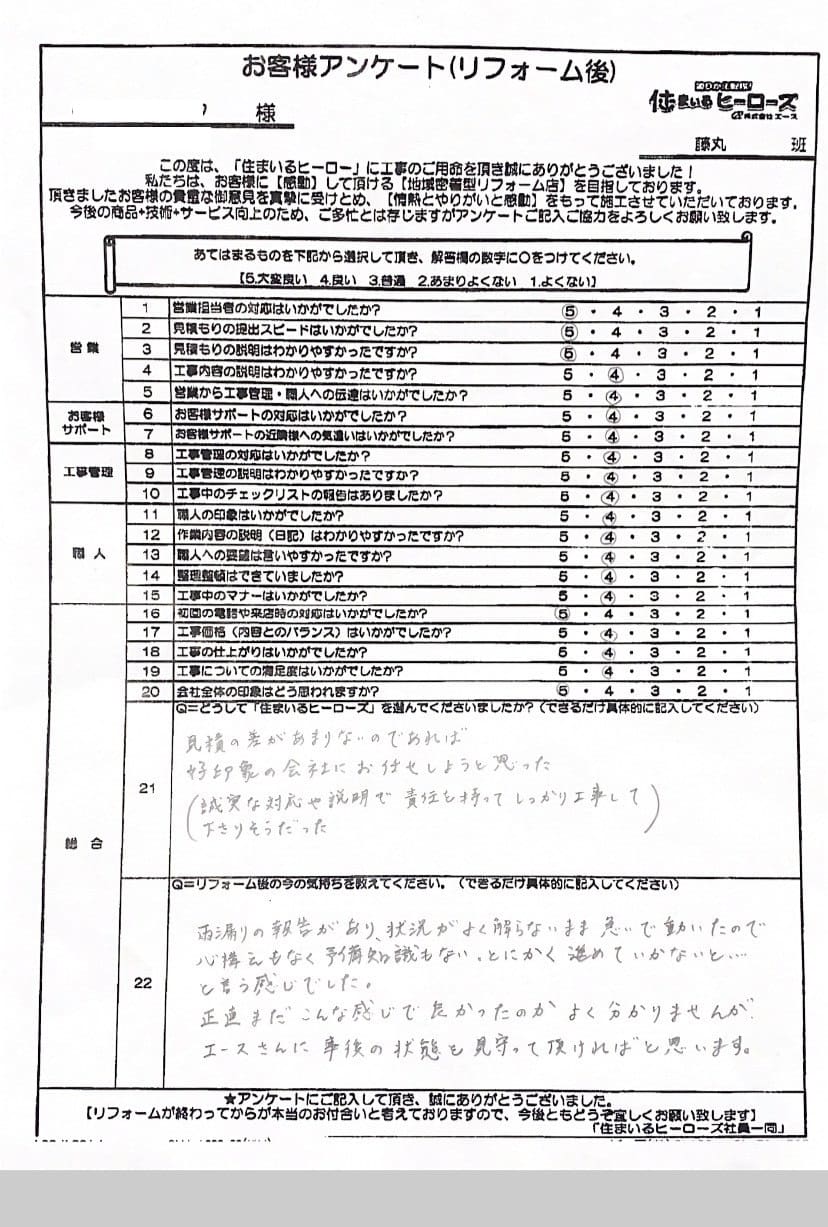 お客様アンケート(リフォーム後)
様
住まいるヒーローズ
株式会社エース
藤丸 班
この度は、「住まいるヒーロー」に工事のご用命を頂き誠にありがとうございました!
私たちは、お客様に【感動】して頂ける【地域密着型リフォーム店】を目指しております。
頂きましたお客様の貴重な御意見を真摯に受けとめ、【情熱とやりがいと感動】をもって施工させていただいております。
今後の商品+技術+サービス向上のため、ご多忙とは存じますがアンケートご記入ご協力をよろしくお願い致します。
あてはまるものを下記から選択して頂き、解答欄の数字に〇をつけてください。
【5.大変良い 4.良い 3.普通 2.あまりよくない 1.よくない】
営業
1 営業担当者の対応はいかがでしたか? 5・4・3・2・1
2 見積もりの提出スピードはいかがでしたか? 5・4・3・2・1
3 見積もりの説明はわかりやすかったですか? 5・4・3・2・1
4 工事内容の説明はわかりやすかったですか? 5・4・3・2・1
5 営業から工事管理・職人への伝達はいかがでしたか? 5・4・3・2・1
お客様
サポート
6 お客様サポートの対応はいかがでしたか? 5・4・3・2・1
7 お客様サポートの近隣様への気遣いはいかがでしたか? 5・4・3・2・1
工事管理
8 工事管理の対応はいかがでしたか? 5・4・3・2・1
9 工事管理の説明はわかりやすかったですか? 5・4・3・2・1
10 工事中のチェックリストの報告はありましたか? 5・4・3・2・1
職人
11 職人の印象はいかがでしたか? 5・4・3・2・1
12 作業内容の説明(日記)はわかりやすかったですか? 5・4・3・2・1
13 職人への要望は言いやすかったですか? 5・4・3・2・1
14 整理整頓はできていましたか? 5・4・3・2・1
15 工事中のマナーはいかがでしたか? 5・4・3・2・1
総合
16 初回の電話や来店時の対応はいかがでしたか? 5・4・3・2・1
17 工事価格(内容とのバランス)はいかがでしたか? 5・4・3・2・1
18 工事の仕上がりはいかがでしたか? 5・4・3・2・1
19 工事についての満足度はいかがでしたか? 5・4・3・2・1
20 会社全体の印象はどう思われますか? 5・4・3・2・1
21
Q=どうして「住まいるヒーローズ」を選んでくださいましたか?(できるだけ具体的に記入してください)
見積の差があまりないのであれば
好印象の会社にお任せしようと思った
(誠実な対応や説明で責任を持ってしっかり工事して
下さりそうだった)
22
Q=リフォーム後の今の気持ちを教えてください。(できるだけ具体的に記入してください)
雨漏りの報告があり、状況がよく解らないまま急いで動いたので
心構えもなく予備知識もない。とにかく進めていかないと…
と言う感じでした。
正直まだこんな感じで良かったのかよく分かりませんが、
エースさんに事後の状態も見守って頂ければと思います。
★アンケートにご記入して頂き、誠にありがとうございました。
【リフォームが終わってからが本当のお付合いと考えておりますので、今後ともどうぞ宜しくお願い致します】
「住まいるヒーローズ社員一同」